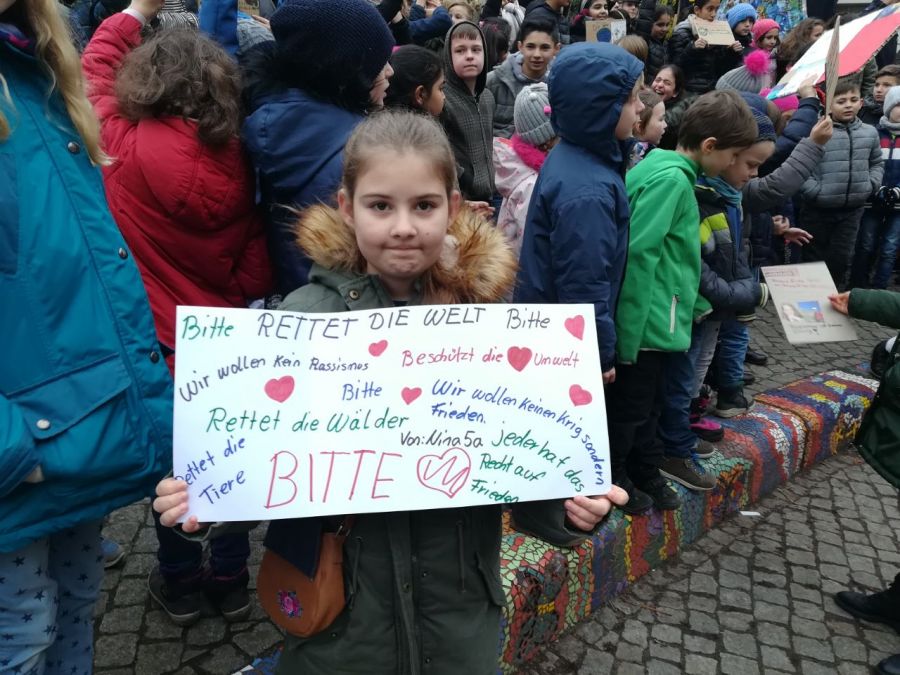 Bitte RETTET DIE WELT Bitte
Wir wollen Kein Rassismus
Beschützt die Umwelt
Bitte
Wir wollen keinen Krig sondern
Frieden.
Rettet die Wälder
Von: Nina 5a
jeder hat das
Recht auf
Frieden
Rettet die
Tiere
BITTE